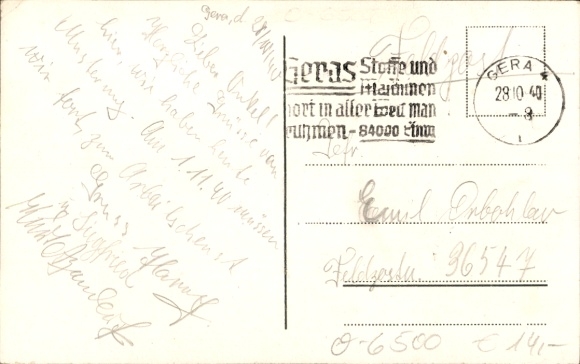 Gera, d. 28/10/40
Lieber Onkel!
Herzliche Grüsse von
hier, wir haben heute
Musterung. Am 1.11.40 müssen
wir fort zum Arbeitsdienst.
Gruss
u. Siegfried
Feldpost
Geras Stoffe und
Maschinen
hört in aller Welt man
rühmen – 84000 Einw
GERA
28.10.40
Gefr.
Emil
Feldpostnr. 36547
O-6500 € 14,-